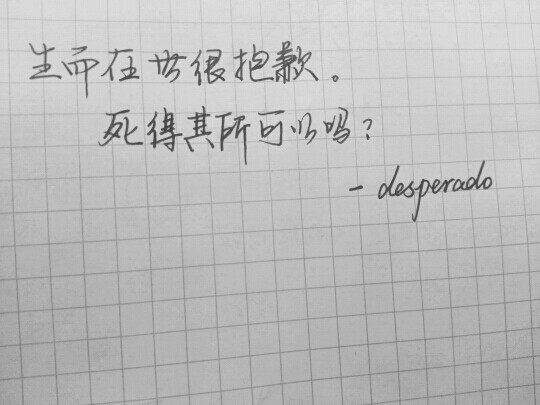 生而在世很抱歉。
死得其所可以吗？
- desperado